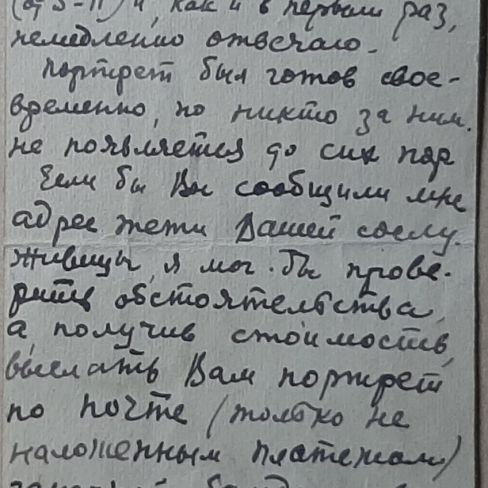 (от 5-II) и, как и в первый раз,
немедленно отвечаю.
Портрет был готов свое-
временно, но никто за ним
не появляется до сих пор
Если бы Вы сообщили мне
адрес тети Вашей сослу-
живицы, я мог бы прове-
рить обстоятельства,
а, получив стоимость,
выслать Вам портрет
по почте (только не
наложенным платежом)